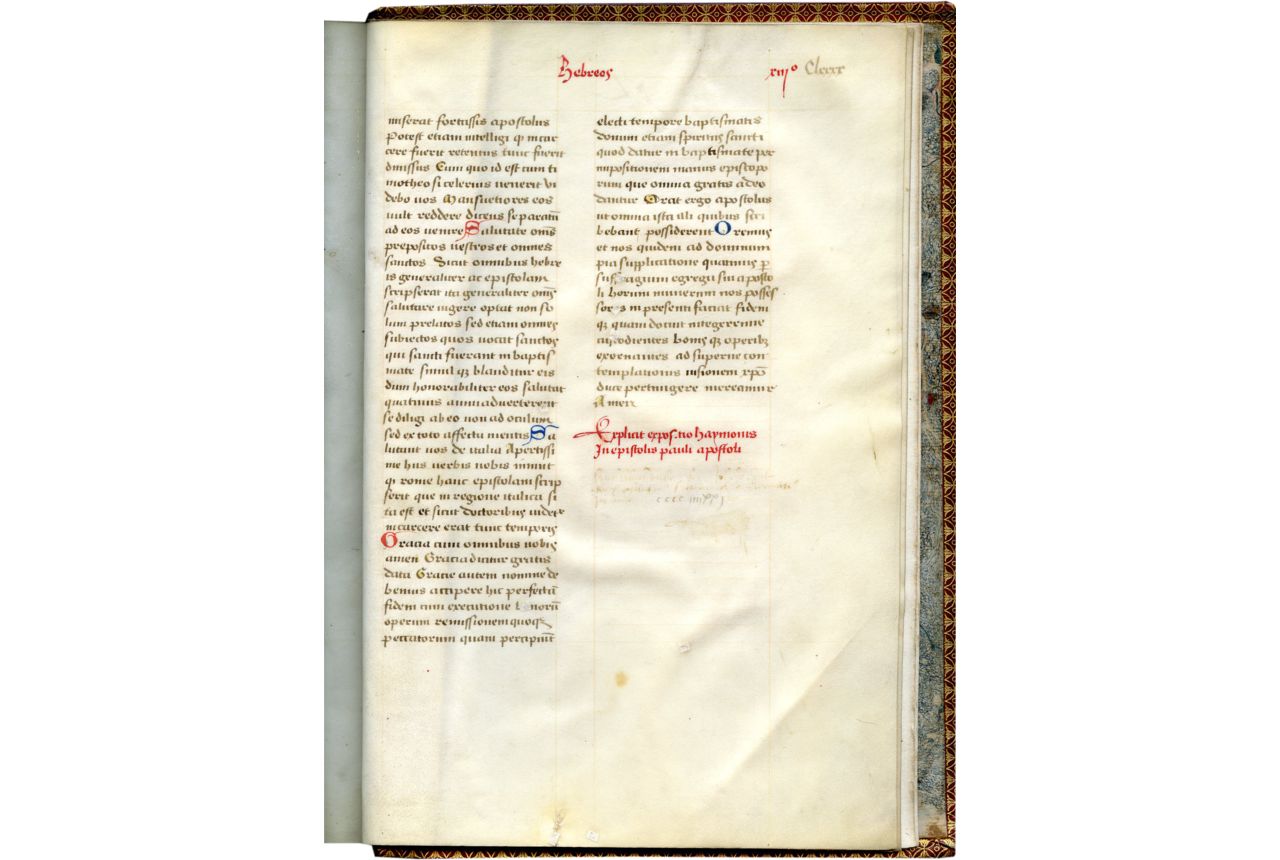 Hebreos
xiijº Clxxx
miserat fortassis apostolus
Potest etiam intelligi qͥ in car
cere fuerit retentus tunc fuerit
dimissus Cum quo id est cum ti
motheo si celerius venerit vi
debo vos Mansuetiores eos
vult reddere dicens se paratū
ad eos venire Salutate om̄s
prepositos vestros et omnes
sanctos Dicit omnibus hebre
is generaliter ac epistolam
scripserat ita generaliter om̄s
salutare iugere optat non so
lum prelatos sed etiam omnes
subiectos quos vocat sanctos
qui sancti fuerant in baptis
mate simul qꝫ blanditur eis
dum honorabiliter eos salutat
quatinus animadverterent
se diligi ab eo non ad oculum
sed ex toto affectu mentis Sa
lutant vos de italia Apertissi
me hiis verbis nobis innuit
qͥ rome hanc epistolam scrip
serit que in regione italica si
ta est et sicut doctoribus videtᷣ
in carcere erat tunc temporis
Gracia cum omnibus vobis
amen Gracia dicitur gratis
data Gracie autem nomine de
bemus accipere hic perfectā
fidem cum executione bonorū
operum remissionem quoqꝫ
peccatorum quam percipiūt
electi tempore baptismatis
donum etiam spiritus sancti
quod datur in baptismate per
impositionem manus episcopo
rum que omnia gratis a deo
dantur Orat ergo apostolus
ut omnia ista illi quibus scri
bebant possiderent Oremus
et nos quidem ad dominum
pia supplicatione quatinus ꝑ
suffragium egregii sui aposto
li horum munerum nos posses
sores in presenti faciat fidem
qꝫ quam docuit integerrime
custodientes bonis qꝫ operibꝫ
exornantes ad superne con
templationis visionem xp̄o
duce pertingere mereamur
Amen
Explicit expositio haymonis
In epistolis pauli apostoli